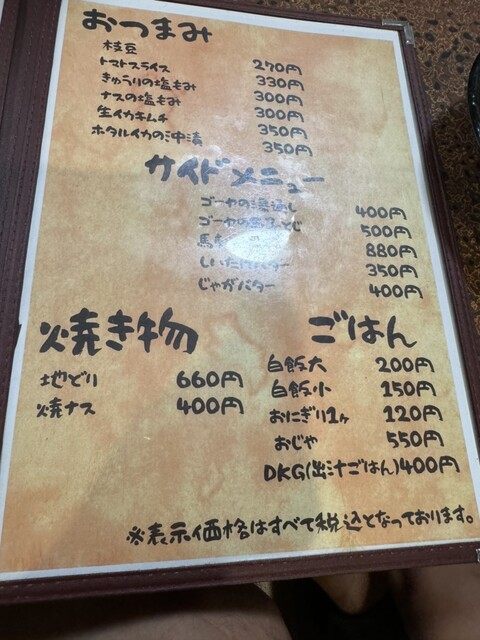 おつまみ
枝豆 270円
トマトスライス 330円
きゅうりの塩もみ 300円
ナスの塩もみ 300円
生イカキムチ 350円
ホタルイカの沖漬 350円
サイドメニュー
ゴーヤの湯通し 400円
ゴーヤの とじ 500円
馬 880円
しいたけバター 350円
じゃがバター 400円
焼き物
地どり 660円
焼ナス 400円
ごはん
白飯大 200円
白飯小 150円
おにぎり1ヶ 120円
おじや 550円
DKG(出汁ごはん) 400円
※表示価格はすべて税込となっております。